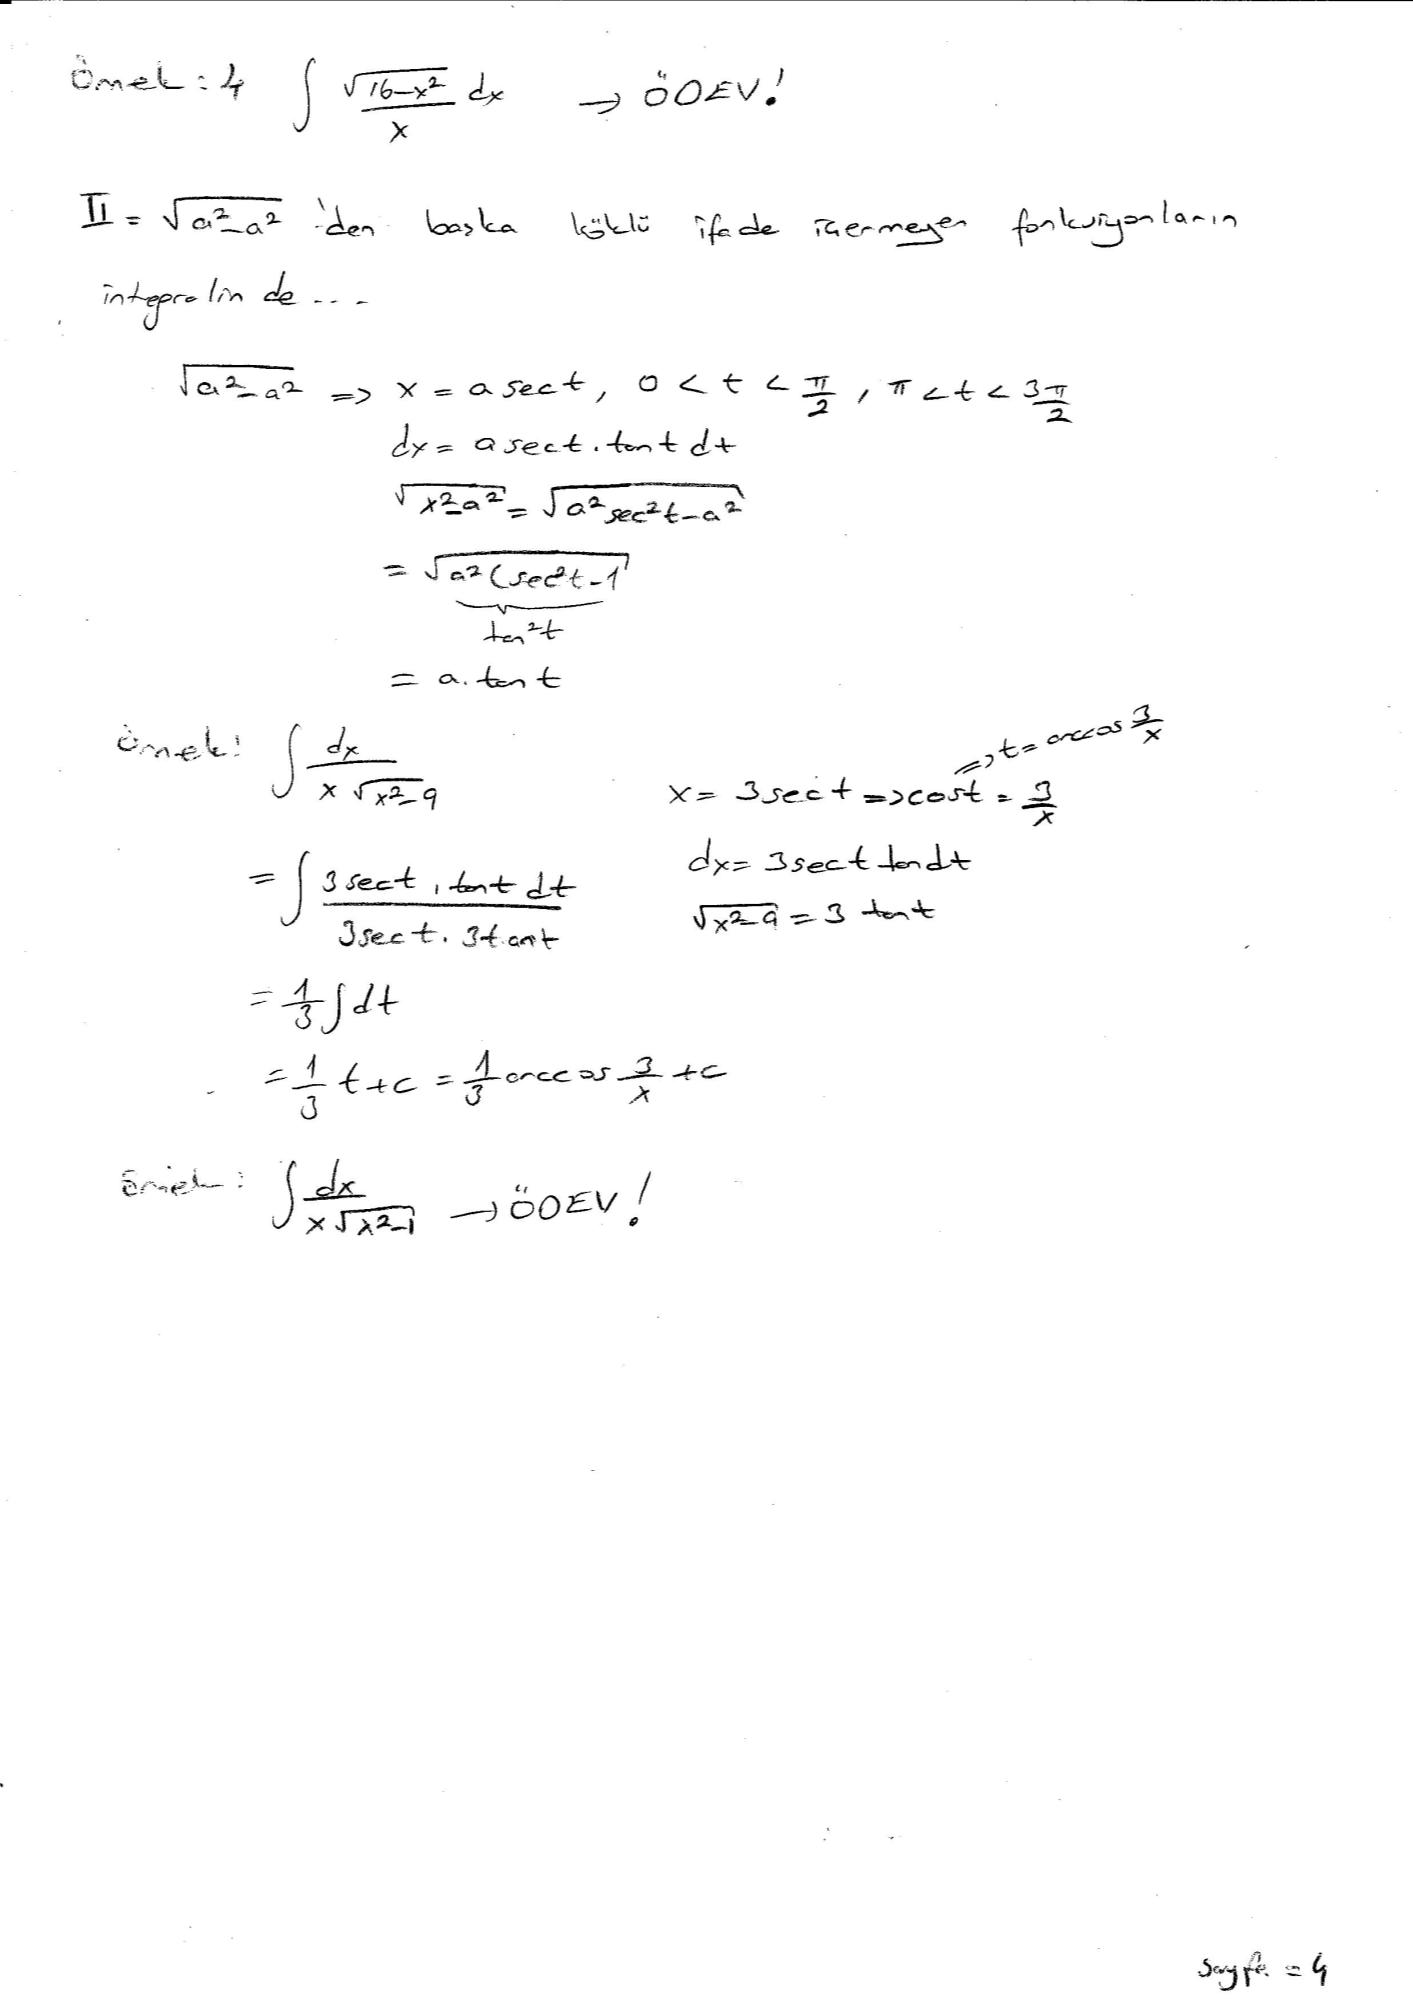 Örnek : 4 ∫ √16-x² / x dx → ÖDEV!
II = √a²-a² 'den başka köklü ifade içermeyen fonksiyonların
integralin de ...
√a²-a² => x = a sect, 0 < t < π/2, π < t < 3π/2
dx = a sect . tant dt
√x²-a² = √a² sec²t - a²
= √a² (sec²t - 1
tan²t
= a . tan t
=> t = arccos 3/x
Örnek: ∫ dx / x √x²-9 x = 3 sect => cost = 3/x
dx = 3 sect tan dt
= ∫ 3 sect . tant dt / 3 sect . 3 tant
√x²-9 = 3 tant
= 1/3 ∫ dt
= 1/3 t + c = 1/3 arccos 3/x + c
Örnek : ∫ dx / x √x²-1 → ÖDEV!
Sayfa = 4